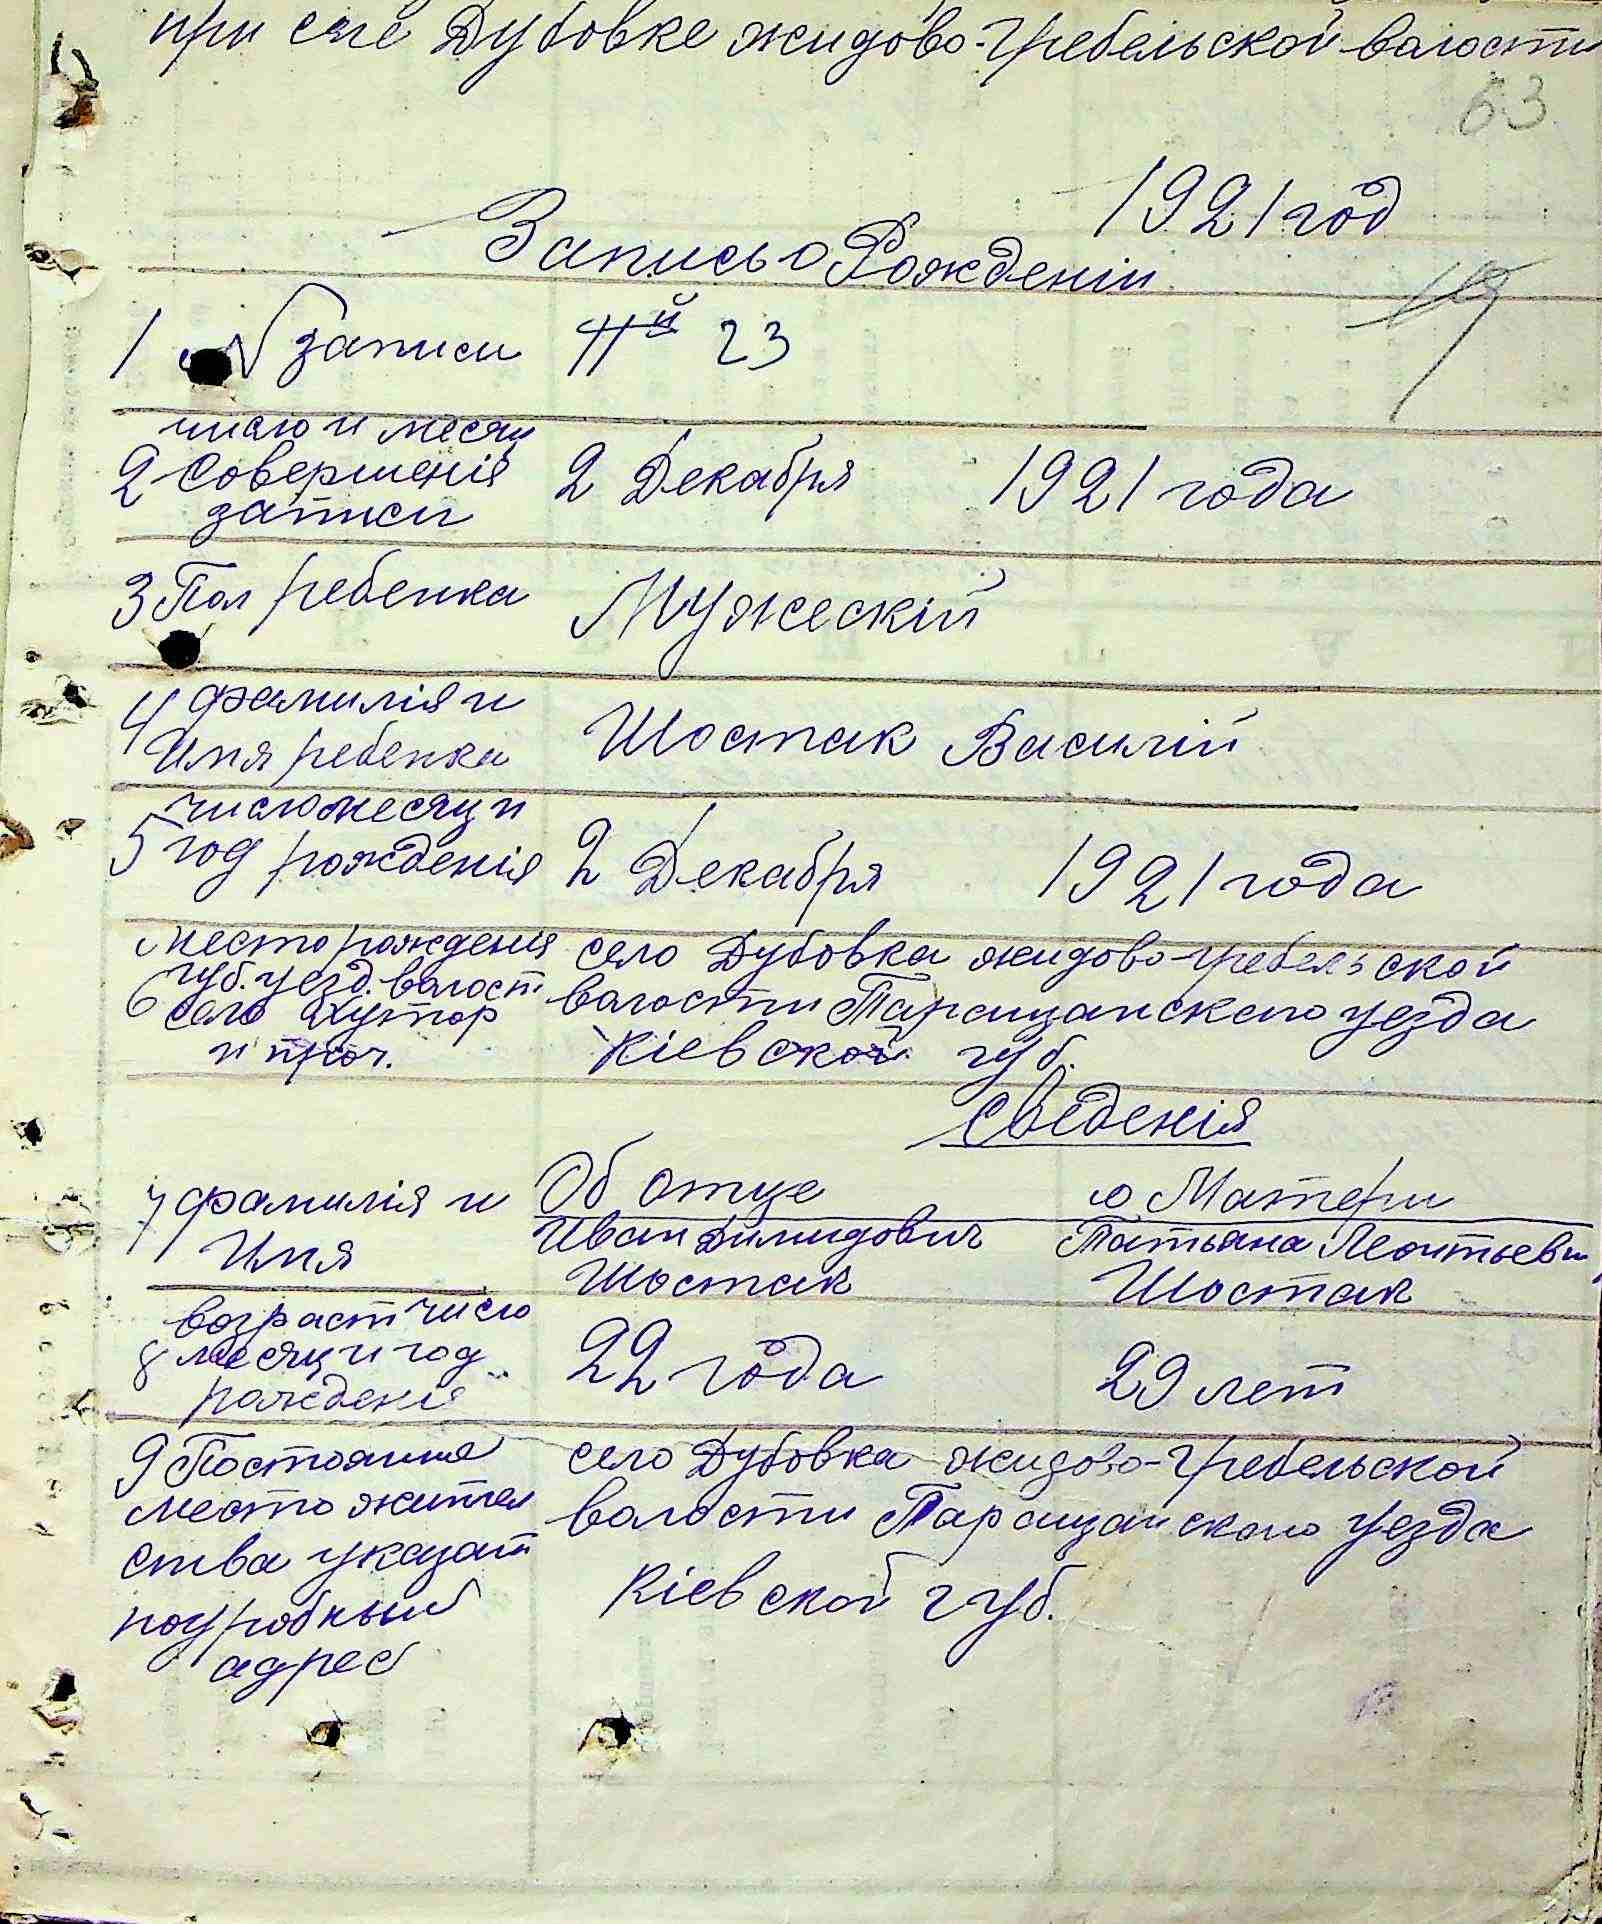 при селе Дубовке жидово-Гребельской волости
63
1921 год
Запись о Рожденіи
1 № записи 23
число и месяц
2 Совершенія 2 Декабря 1921 года
записи
3 Пол ребенка Мужескій
4 фамилія и
Имя ребенка Шостак Василій
число месяц и
5 год рожденія 2 Декабря 1921 года
место рожденія село Дубовка жидово-гребельской
губ. уезд. волост волости Таращанского уезда
6 село Хутор
и проч. Кіевской губ.
Сведенія
7 фамилія и Об отце о Матери
Имя Иван Димидович Татьяна Леонтьевн
Шостак Шостак
возраст число
8 месяц и год 22 года 29 лет
рожденія
9 Постоянне село Дубовка жидово-Гребельской
место жител волости Таращанского уезда
ства указат
подробный Кіевской губ.
адрес